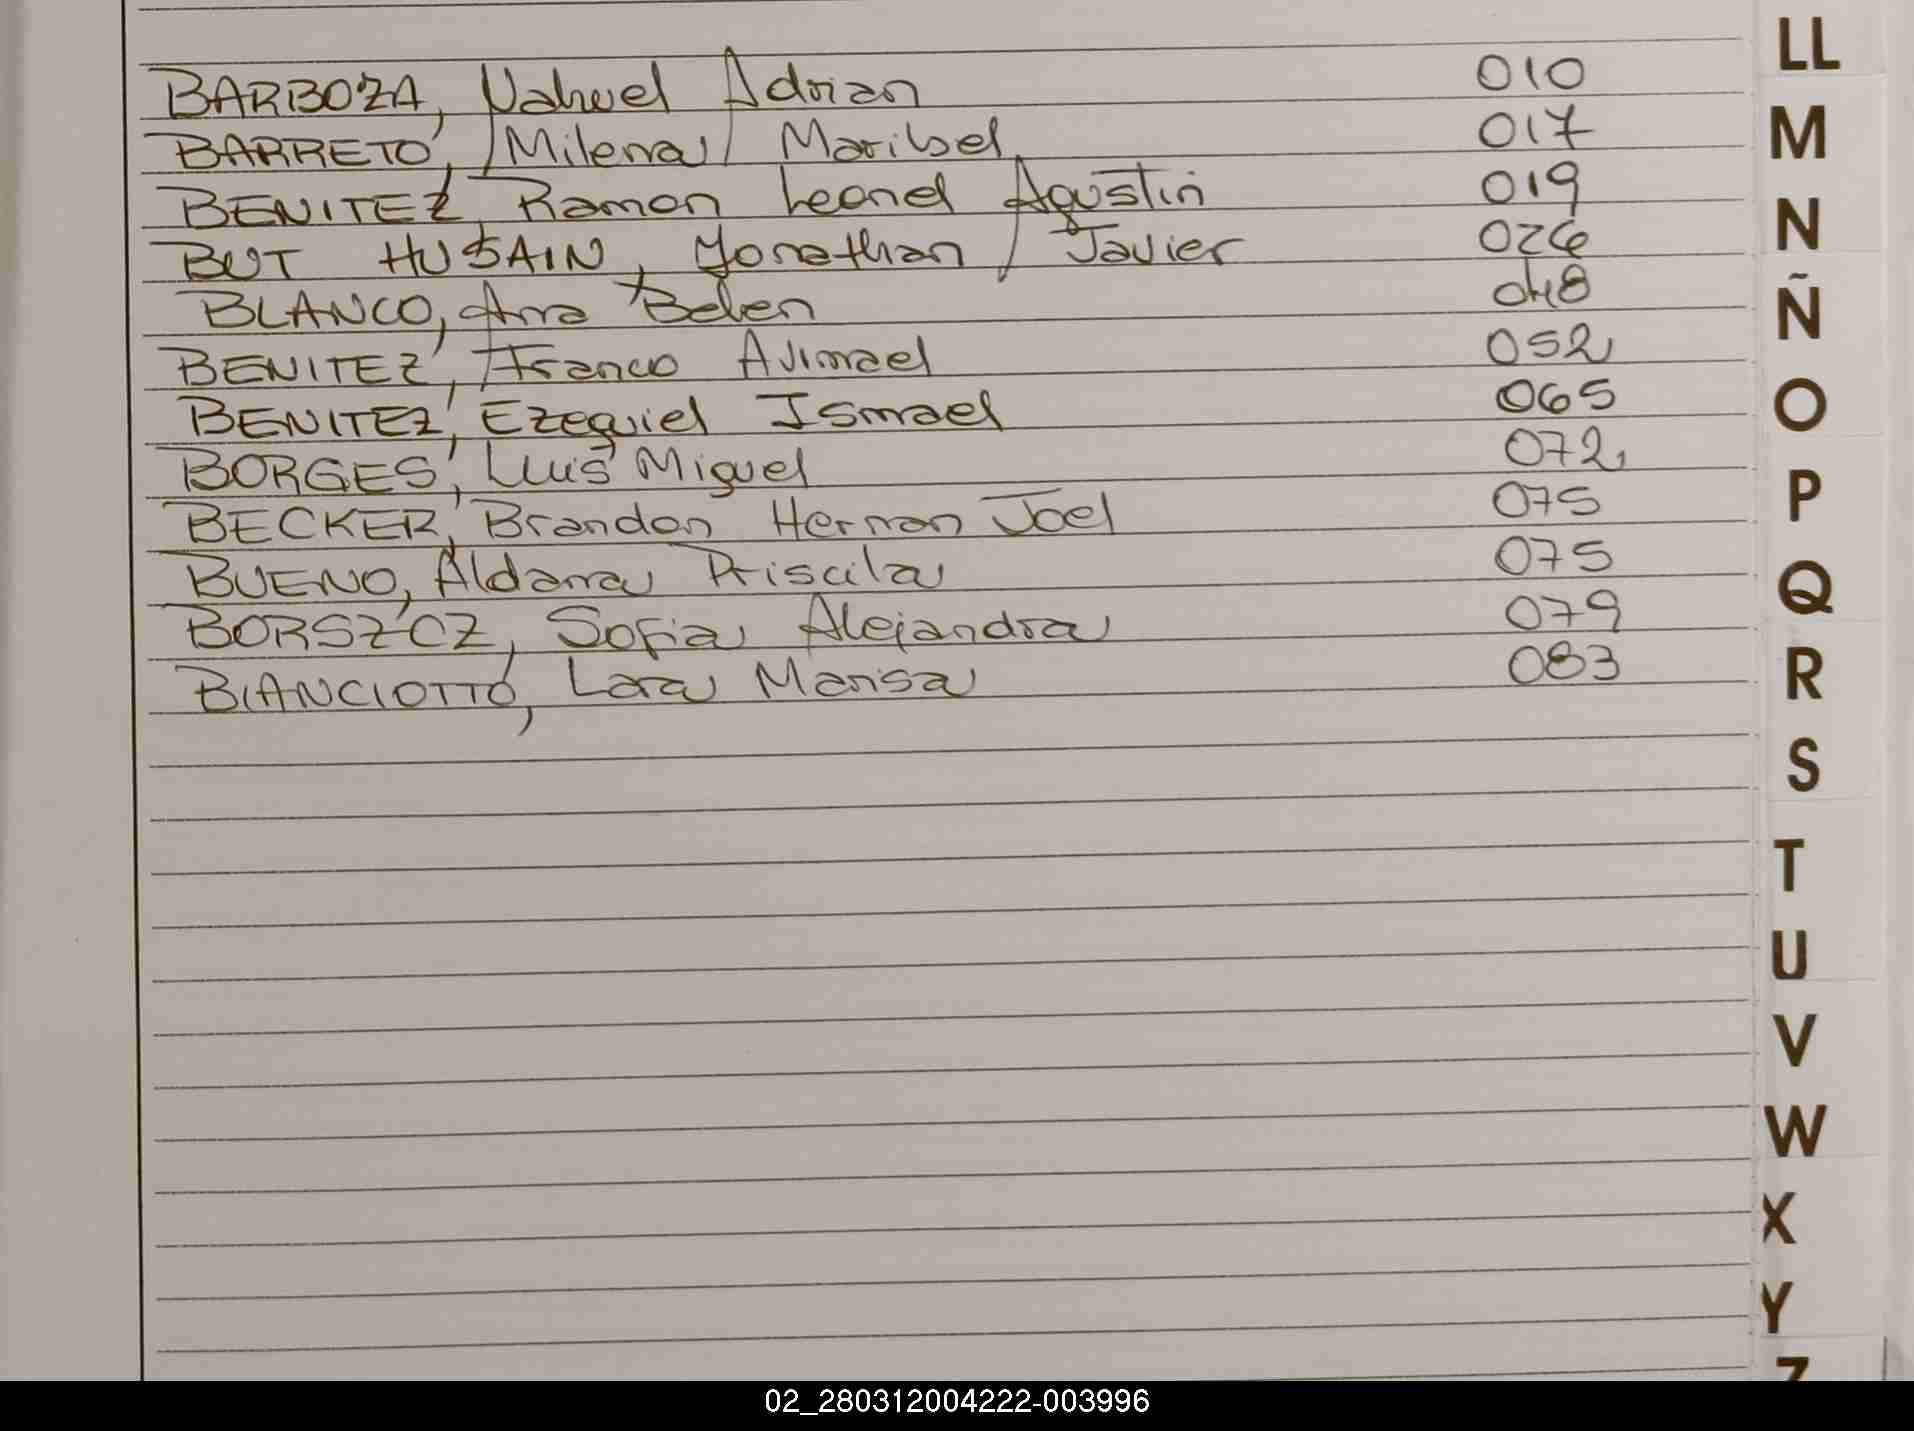 BARBOZA, Nahuel Adrian 010
BARRETO, Milena Maribel 017
BENITEZ, Ramon Leonel Agustin 019
BUT HUSAIN, Yonathan Javier 026
BLANCO, Ana Belen 048
BENITEZ, Franco Avimael 052
BENITEZ, Ezequiel Ismael 065
BORGES, Luis Miguel 072
BECKER, Brandon Hernan Joel 075
BUENO, Aldana Priscila 075
BORSZCZ, Sofia Alejandra 079
BIANCIOTTO, Lara Marisa 083
LL
M
N
Ñ
O
P
Q
R
S
T
U
V
W
X
Y
Z
02_280312004222-003996